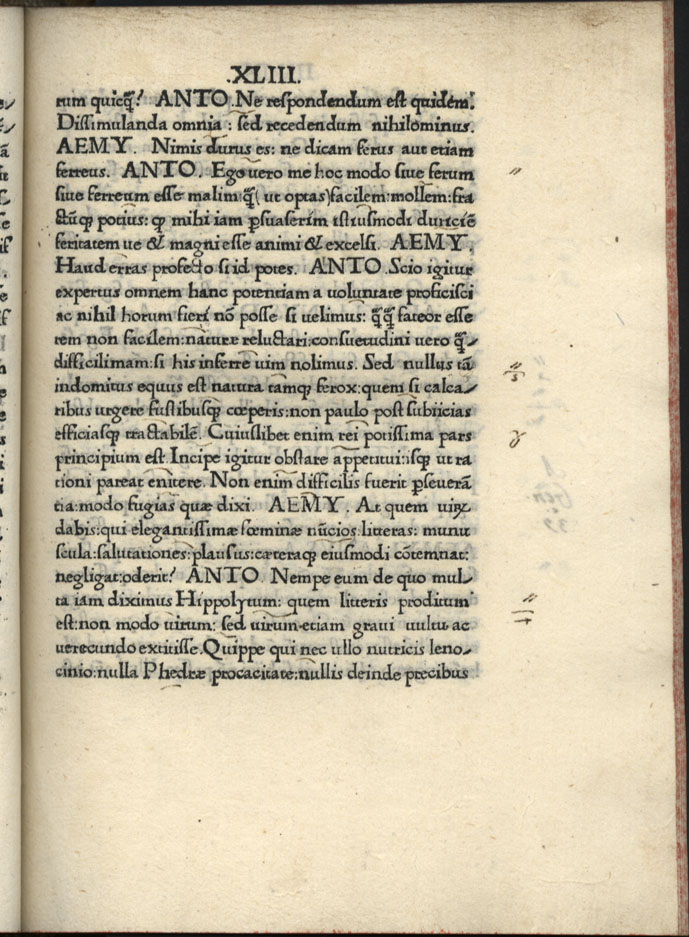 .XLIII.
rum quicꝗ̃? ANTO. Ne respondendum est quidem.
Dissimulanda omnia: sed recedendum nihilominus.
AEMY. Nimis durus es: ne dicam ferus aut etiam
ferreus. ANTO. Ego vero me hoc modo siue ferum
siue ferreum esse malim: ꝗ̃( ut optas) facilem: mollem: fra
ctũqꝫ potius: qꝫ mihi iam ꝑsuaserim istiusmodi duriciẽ
feritatem ue & magni esse animi & excelsi. AEMY.
Haud erras profecto si id potes. ANTO. Scio igitur
expertus omnem hanc potentiam a uoluntate proficisci
ac nihil horum fieri nõ posse si uelimus: ꝗ̃ꝗ̃ fateor esse
rem non facilem: naturæ reluctari: consuetudini uero ꝗ̃-
difficilimam: si his inferre uim nolimus. Sed nullus tã
indomitus equus est natura tamqꝫ ferox: quem si calca-
ribus urgere fustibusqꝫ cœperis: non paulo post subiicias
efficiasqꝫ tractabilẽ. Cuiuslibet enim rei potissima pars
principium est. Incipe igitur obstare appetitui: isqꝫ ut ra
tioni pareat enitere. Non enim difficilis fuerit ꝑseuerã
tia: modo fugias quæ dixi. AEMY. At quem uiꝝ
dabis: qui elegantissimæ fœminæ nũcios: litteras: munu
scula: salutationes: plausus: cæteraqꝫ eiusmodi cõtemnat:
negligat: oderit? ANTO. Nempe eum de quo mul-
ta iam diximus Hippolytum: quem litteris proditum
est: non modo uirum: sed uirum etiam graui uultu ac
uerecundo extitisse. Quippe qui nec ullo nutricis leno-
cinio: nulla Phedræ procacitate: nullis deinde precibus